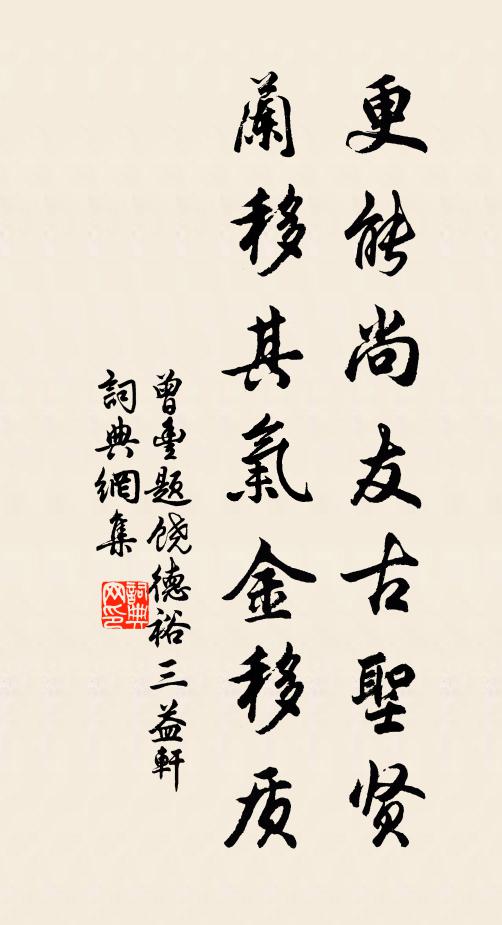 更能尚友古聖贤
蘭移其氣金移质
曾豐题饶德裕三益軒
詞典網集
詞典网印